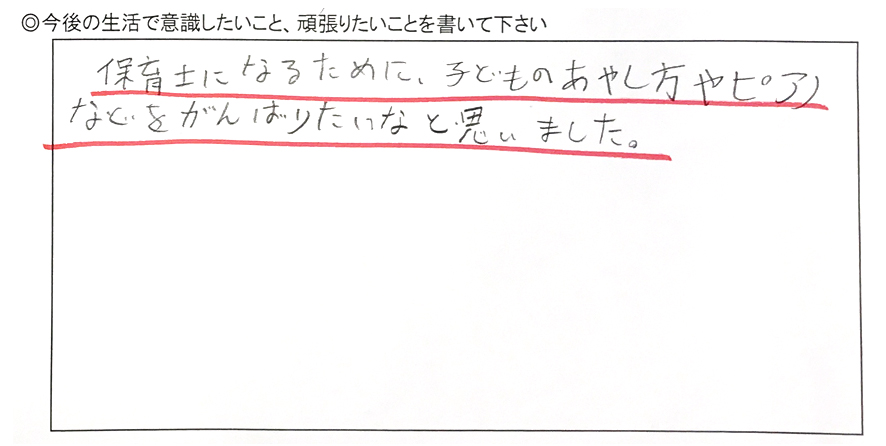 ◎今後の生活で意識したいこと、頑張りたいことを書いて下さい
保育士になるために、子どものあやし方やピアノ
などをがんばりたいなと思いました。